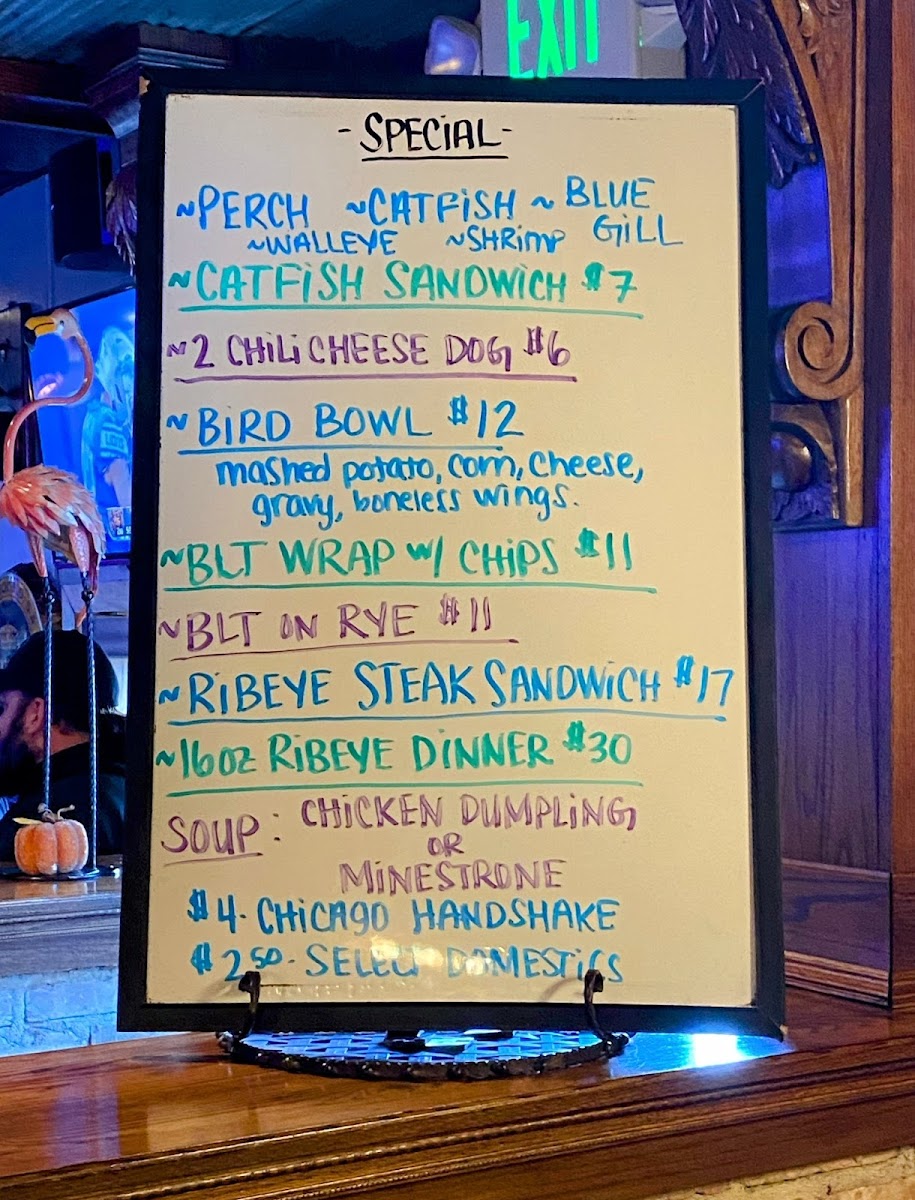 EXIT
- SPECIAL -
~PERCH ~CATFISH ~BLUE GILL
~WALLEYE ~SHRIMP
~CATFISH SANDWICH $7
~2 CHILI CHEESE DOG $6
~BIRD BOWL $12
mashed potato, corn, cheese,
gravy, boneless wings.
~BLT WRAP W/ CHIPS $11
~BLT ON RYE $11
~RIBEYE STEAK SANDWICH $17
~16oz RIBEYE DINNER $30
SOUP: CHICKEN DUMPLING
OR
MINESTRONE
$4- CHICAGO HANDSHAKE
$2.50- SELECT DOMESTICS